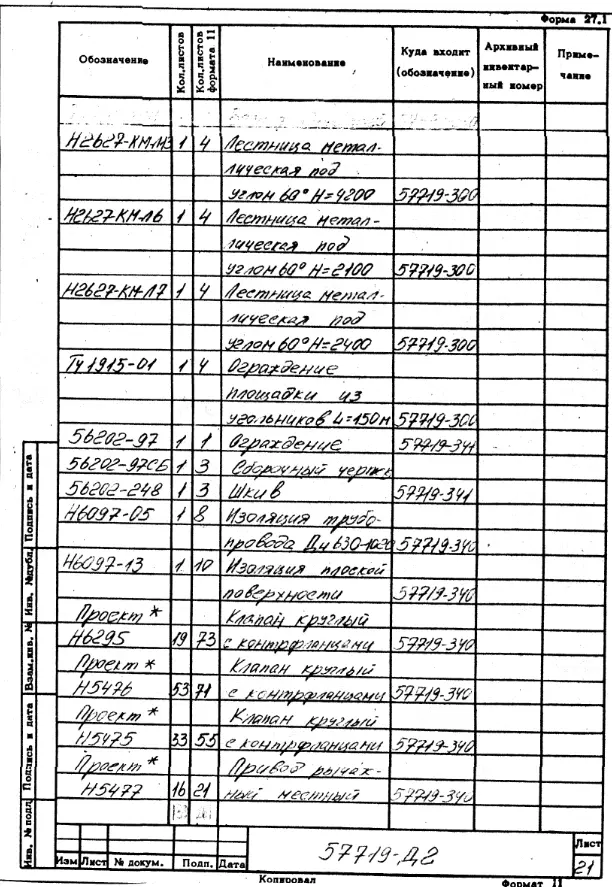 Форма 27.1
Обозначение Кол.листов Кол.листов формата 11 Наименование Куда входит (обозначение) Архивный инвентар-ный номер Приме-чание
Н2627-КМЛ13 1 4 Лестница метал-
лическая под
углом 60° Н=4200 57719-300
Н2627-КМЛ6 1 4 Лестница метал-
лическая под
углом 60° Н=2100 57719-300
Н2627-КМ-Л7 1 4 Лестница метал-
лическая под
углом 60° Н=2400 57719-300
ТУ1915-01 1 4 Ограждение
площадки из
угольников L=150м 57719-300
56202-97 1 1 Ограждение 57719-341
56202-97СБ 1 3 Сборочный чертеж
56202-248 1 3 Шкив 57719-341
Н6097-05 1 8 Изоляция трубо-
провода Дн 630-1020 57719-340
Н6097-13 1 10 Изоляция плоской
поверхности 57719-340
Проект* Клапан круглый
Н6295 19 73 с контрфланцами 57719-340
Проект* Клапан круглый
Н5476 53 71 с контрфланцами 57719-340
Проект* Клапан круглый
Н5475 33 55 с контрфланцами 57719-340
Проект* Привод рычаж-
Н5477 16 21 ный местный 57719-340
Инв. № подл. Подпись и дата Взам.инв. № Инв. №дубл. Подпись и дата
57719-Д2
Лист
21
Изм Лист № докум. Подп. Дата
Копировал Формат 11